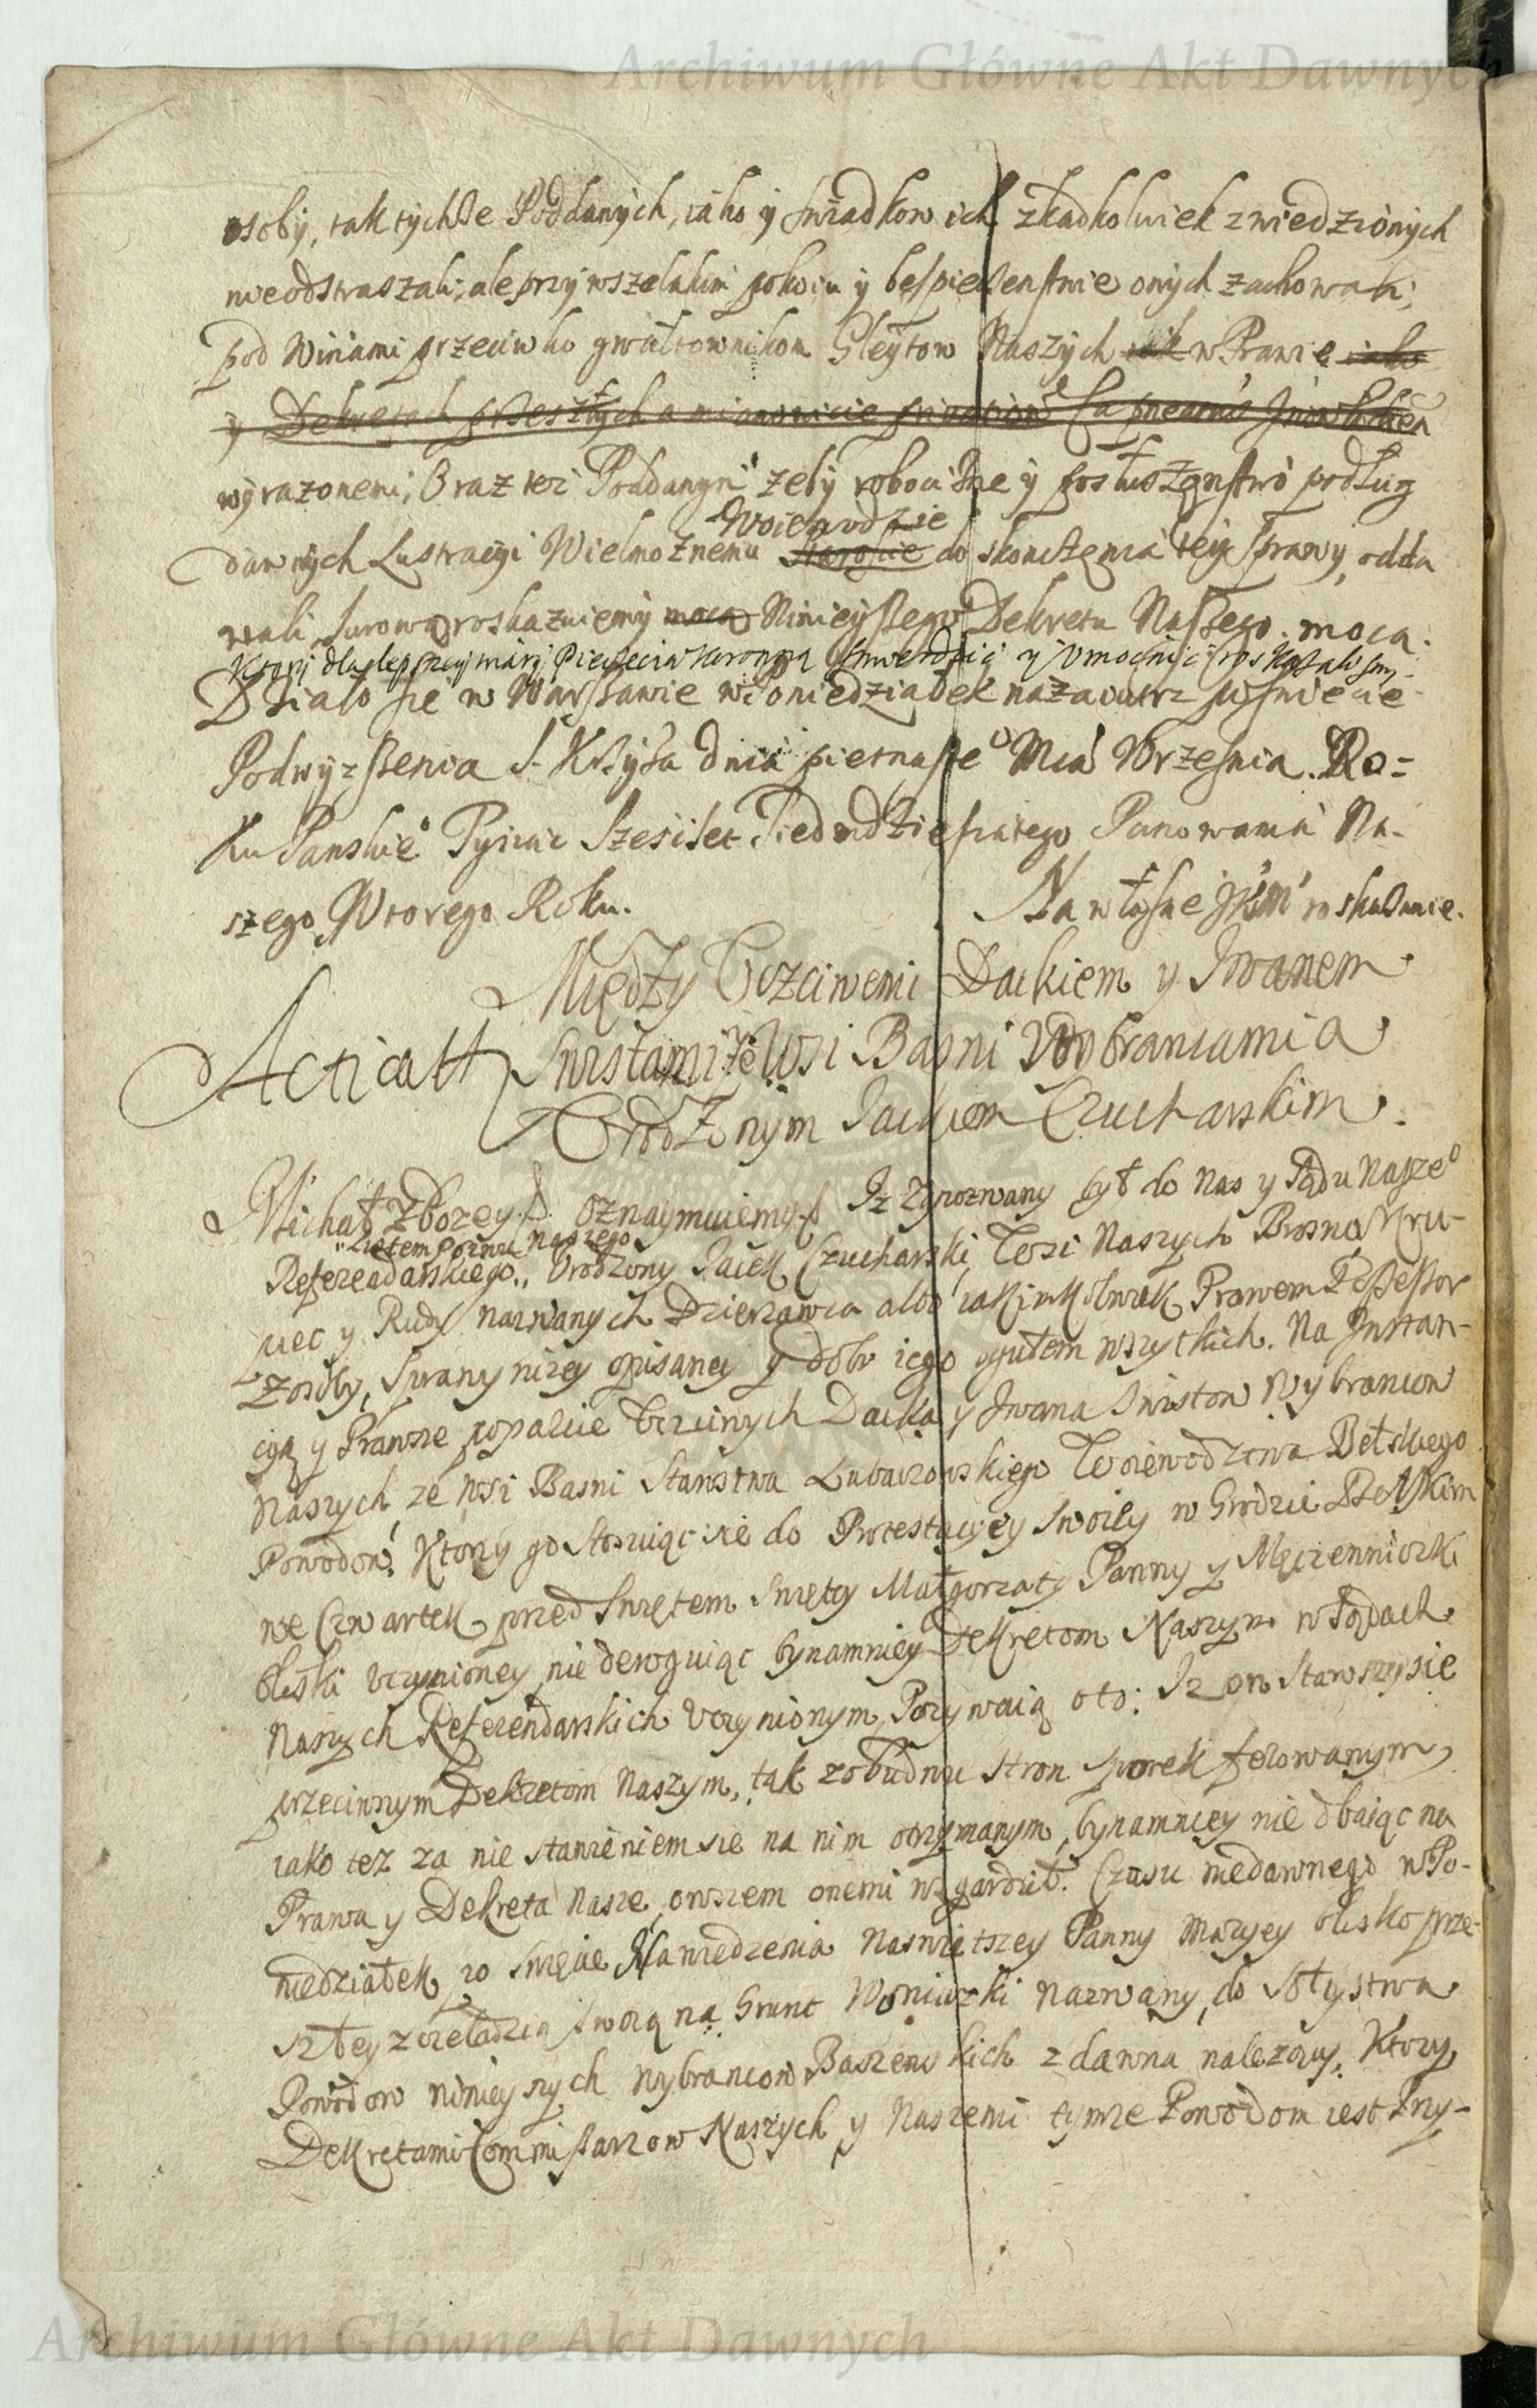 Archiwum Główne Akt Dawnych
osoby, tak tychże Poddanych, iako y swiadkow ich zkadkolwiek zwiedzionych
nieodstraszali; ale przy wszelakim pokoiu y bespieczenstwie onych zachowali;
pod Winami przeciwko gwałtownikom Gleytow Naszych w Prawie iako
y Dekretach przeszłych a mianowicie
wyrazonemi; Oraz tesz Poddanym zeby robocizne y posłuszenstwo podług
Woiewodzie
dawnych Lustracyi Wielmoznemu Staroscie do skonczenia tey sprawy, odda
wali, surowo roskazuiemy moca Ninieyszego Dekretu Naszego moca.
Ktory dla lepszey wiary, Pieczecia Koronna stwerdzic y Vmocnic roskazalismy.
Działo sie w Warszawie w Poniedziałek nazaiutrz po swiecie
Podwyzszenia S. Krzyża dnia pietnastego Mca Wrzesnia. Ro=
ku Panskiego Tysiac Szesiset Siedmdziesiatego Panowania Na-
szego Wtorego Roku.
Na własne JKM roskazanie.
Między Vczciwemi Dackiem y Iwanem
Acticatt
Swistami ze Wsi Basni Wybrancamia
Vrodzonym Jackiem Czucharskim.
Michał z Bozey Oznaymuiemy Iz Zapozwany był do Nas y Sądu Naszego
Listem pozwu Naszego
Referendarskiego, Vrodzony Jacek Czucharski, Wsi Naszych Brosna Kru-
uec y Ruda nazwanych Dzierzawca albo iakimkolwiek Prawem Possessor
z osoby, sprawy nizey opisaney y dobr iego ogułem wszytkich. Na Instan-
cyą y Prawne poparcie Vczciwych Dacka y Iwana Swistow Wybrancow
Naszych ze Wsi Basni Starostwa Lubaczowskiego Woiewodztwa Bełskiego
Powodow. Ktorzy go stosuiąc sie do Protestacyey swoiey w Grodzie Bełskim
we Czwartek przed Swiętem Swiętey Małgorzaty Panny y Męczenniczki
blisko Vczynioney, nie deroguiąc bynamniey Dekretom Naszym w Sądach
Naszych Referendarskich Vczynionym, Pozywaią oto: Iz on Stawszy sie
przeciwnym Dekretom Naszym, tak z obudwu stron sporek ferowanym,
iako tez za nie stawieniem sie na nim otrzymanym, bynamniey nie dbaiąc na
Prawa y Dekreta Nasze, owszem onemi wzgardził. Czasu niedawnego w Po-
niedziałek po Swięcie Nawiedzenia Naswiętszey Panny Maryey blisko prze-
szłey z czeladzia swoią na Grunt Woniaczki nazwany, do Sołtystwa
Powodow ninieyszych Wybrancow Baszenskich z dawna nalezący, Ktory
Dekretami Commissarzow Naszych y Naszemi tymze Powodom iest Przy-
Archiwum Główne Akt Dawnych